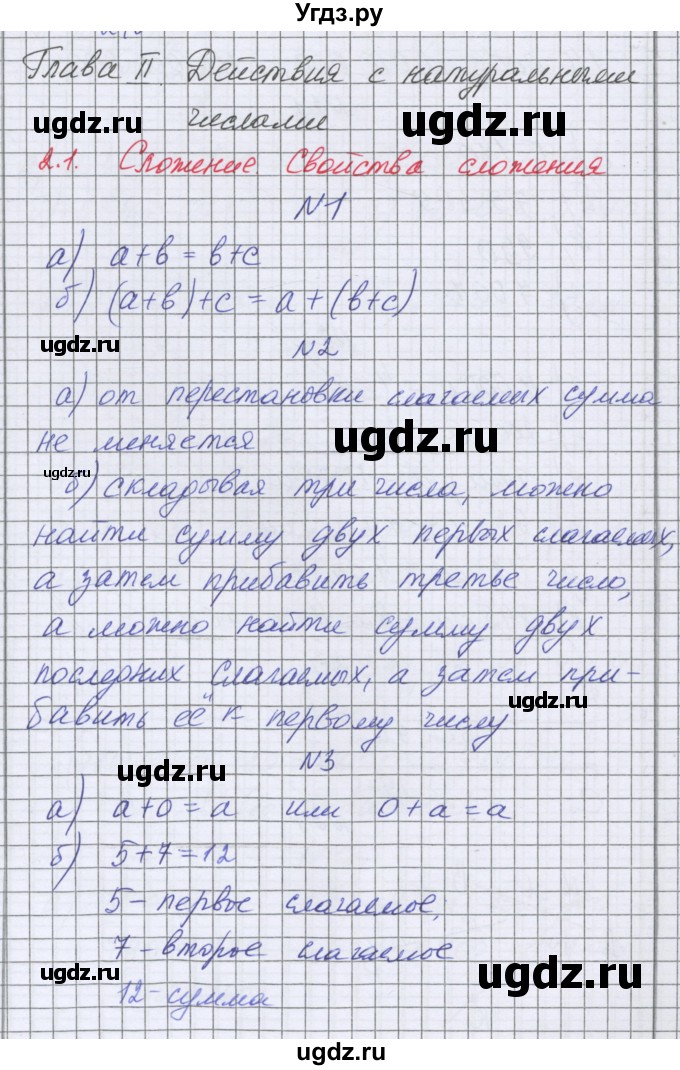 Угдз.ру
Глава II. Действия с натуральными
ugdz.ru ugdz.ru
числами
2.1. Сложение. Свойства сложения
N1
а) a+b = b+c
б) (a+b)+c = a+(b+c)
ugdz.ru
N2
а) от перестановки слагаемых сумма
не меняется
ugdz.ru
ugdz.ru
б) складывая три числа, можно
найти сумму двух первых слагаемых,
а затем прибавить третье число,
а можно найти сумму двух
последних слагаемых, а затем при-
ugdz.ru
бавить её к первому числу
N3
ugdz.ru
а) a+0=a или 0+a=a
б) 5+7=12
ugdz.ru
5 - первое слагаемое,
7 - второе слагаемое
ugdz.ru
ugdz.ru
12 - сумма
ugdz.ru